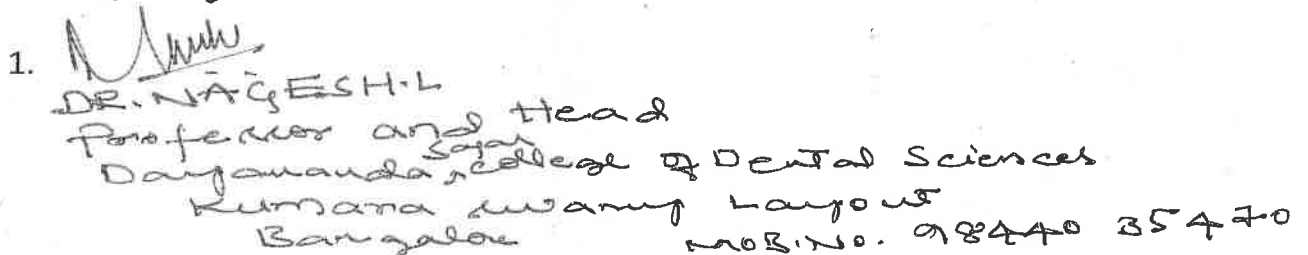 1.
DR. NAGESH.L
Professor and Head
Dayananda Sagar college of Dental Sciences
Kumara swamy Layout
Bangalore MOB.NO. 98440 35470